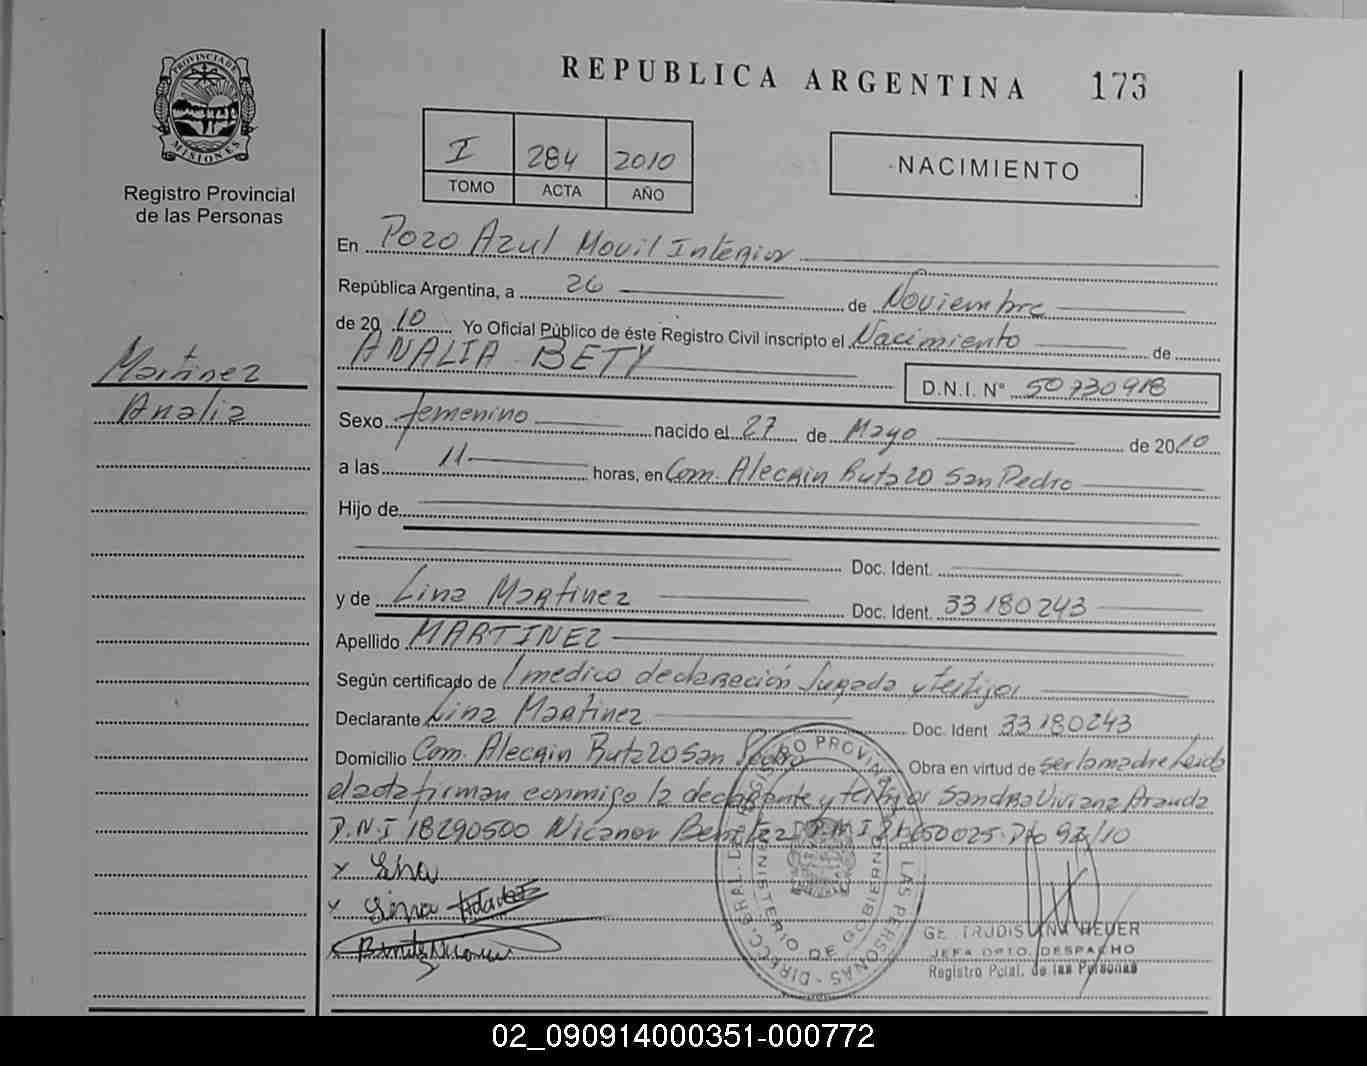 REPUBLICA ARGENTINA 173
PROVINCIA DE MISIONES
Registro Provincial
de las Personas
I 284 2010
TOMO ACTA AÑO
NACIMIENTO
En Pozo Azul Movil Interior
República Argentina, a 26 de Noviembre
de 2010 Yo Oficial Público de éste Registro Civil inscripto el Nacimiento de
ANALIA BETY
D.N.I. Nº 50730918
Martinez
Analia
Sexo femenino nacido el 27 de Mayo de 2010
a las 11 horas, en Com. Alecrin Ruta 20 San Pedro
Hijo de
Doc. Ident.
y de Lina Martinez Doc. Ident. 33180243
Apellido MARTINEZ
Según certificado de 1 medico declaración Jurada y testigos
Declarante Lina Martinez Doc. Ident 33180243
Domicilio Com. Alecrin Ruta 20 San Pedro Obra en virtud de ser la madre Leida
el acta firman conmigo la declarante y testigos Sandra Viviana Aranda
D.N.I 18290500 Nicanor Benitez D.N.I
x Lina
x
x Benitez Nicanor
DIREC. GRAL. DE REGISTRO PROVINCIAL DE LAS PERSONAS
MINISTERIO DE GOBIERNO
GERTRUDIS HEUER
JEFA DPTO. DESPACHO
Registro Pcial. de las Personas
02_090914000351-000772